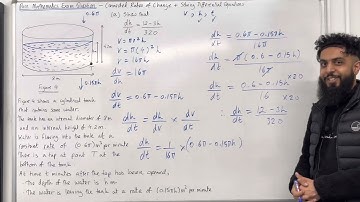 Pure Mathematics Exam Question - Connected Rates of Change + Solving Differential Equations
0.6π
(a) Show that
dh/dt = (12-3h)/320
V = πr²h
V = π(4)²h
V = 16πh
dV/dh = 16π
dV/dt = 0.6π - 0.15πh
dh/dt = dh/dV × dV/dt
dh/dt = 1/16π × (0.6π - 0.15πh)
dh/dt = 0.6π - 0.15πh / 16π
dh/dt = π(0.6 - 0.15h) / 16π
dh/dt = 0.6 - 0.15h / 16 ×20 ×20
dh/dt = 12 - 3h / 320
h m
8 m
0.15πh
Figure shows a cylindrical tank
that contains some water.
The tank has an internal diameter of 8m
and an internal height of 4.2m.
Water is flowing into the tank at a
constant rate of (0.6π) m³ per minute
There is a tap at point T at the
bottom of the tank.
At time t minutes after the tap has been opened,
- the depth of the water is h m
- the water is leaving the tank at a rate of (0.15πh) m³ per minute